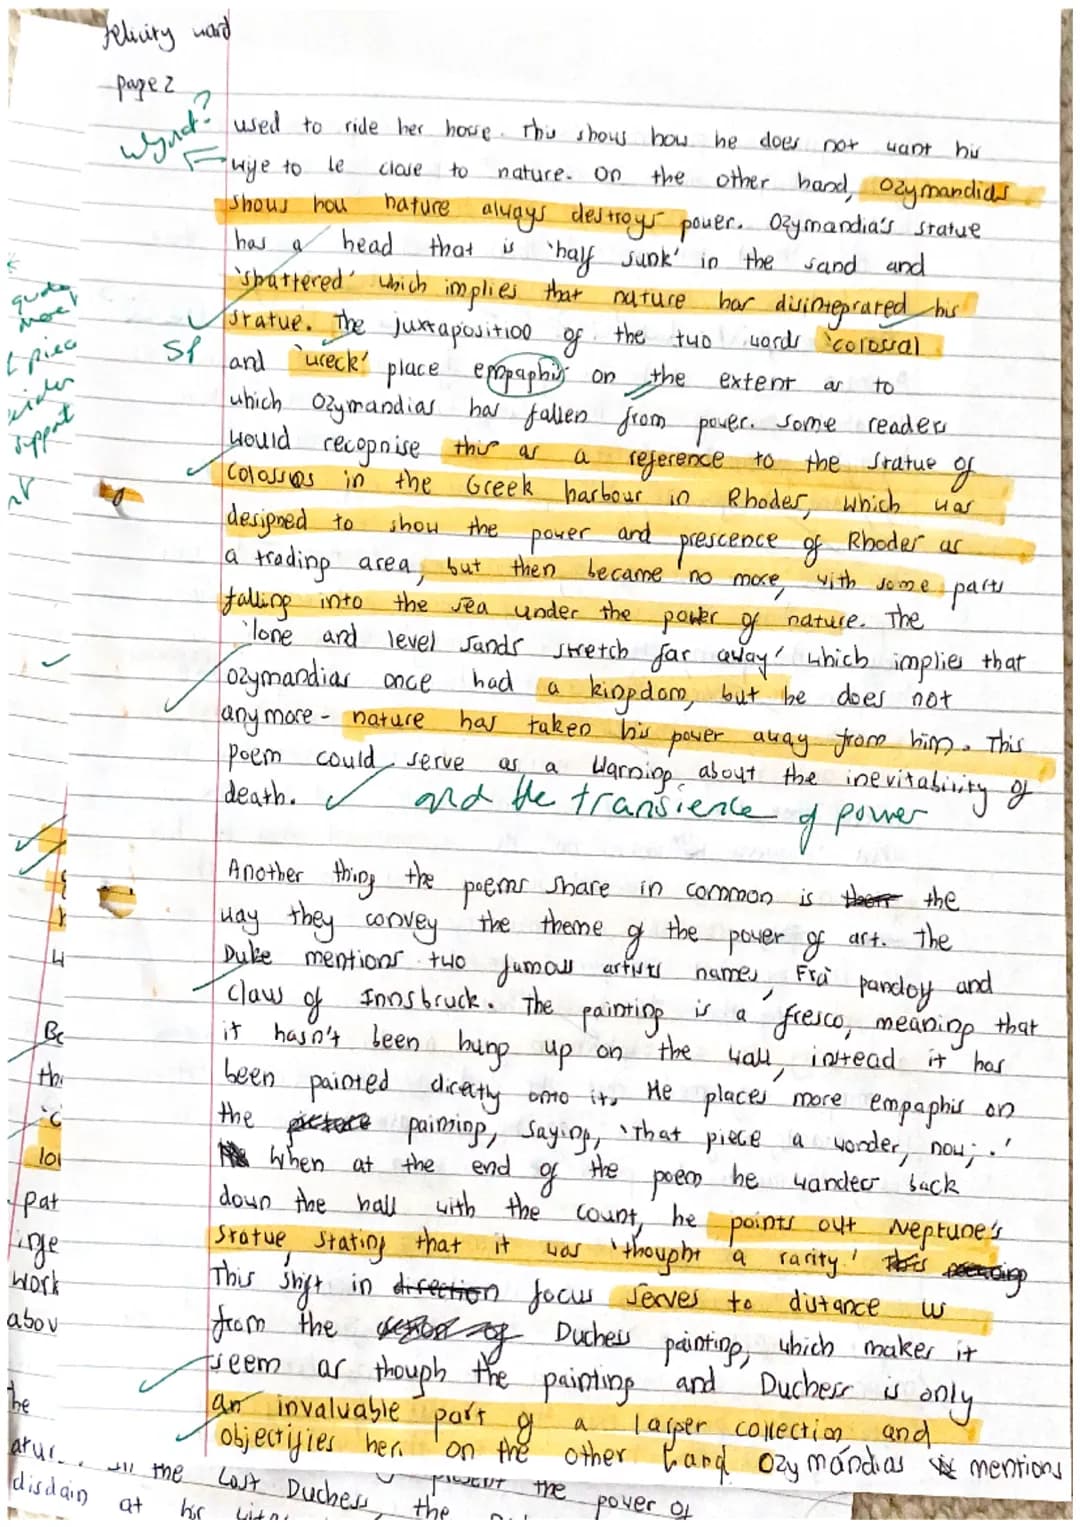 felicity ward
page 2
used to ride her horse. This shows how he does not want his
whynot?
wife to be close to nature. On the other hand, Ozymandias
shows how nature always destroys power. Ozymandia's statue
has a head that is 'half sunk' in the sand and
'shattered' which implies that nature has disintegrated his
statue. The juxtaposition of the two words 'colossal
SP
and 'wreck' place empaphis on the extent as to
which Ozymandias has fallen from power. Some readers
would recognise this as a reference to the statue of
Colossos in the Greek harbour in Rhodes, which was
designed to show the power and prescence of Rhodes as
a trading area, but then became no more, with some parts
falling into the sea under the power of nature. The
'lone and level sands stretch far away' which implies that
Ozymandias once had a kingdom, but he does not
anymore - nature has taken his power away from him. This
poem could serve as a warning about the inevitability of
death.
and the transience of power
Another thing the poems share in common is the
way they convey the theme of the power of art. The
Duke mentions two famous artists names, Fra pandoy and
Claws of Innsbruck. The painting is a fresco, meaning that
it hasn't been hung up on the wall, instead it has
been painted directly onto it. He places more empaphis on
the picture painting, saying, 'that piece a wonder, now;.'
When at the end of the poem he wanders back
down the hall with the count, he points out Neptune's
statue, stating that it was 'thought a rarity.' This
This shift in direction focus serves to distance us
from the Duchess painting, which makes it
seem as though the painting and Duchess is only
an invaluable part of a larger collection and
objectifies her. On the other hand Ozymandias mentions
in the Last Duchess, the
present the power of
disdain at his
quote
more
piece
support
Bc
th
'c
lo
pat
work
abov
he